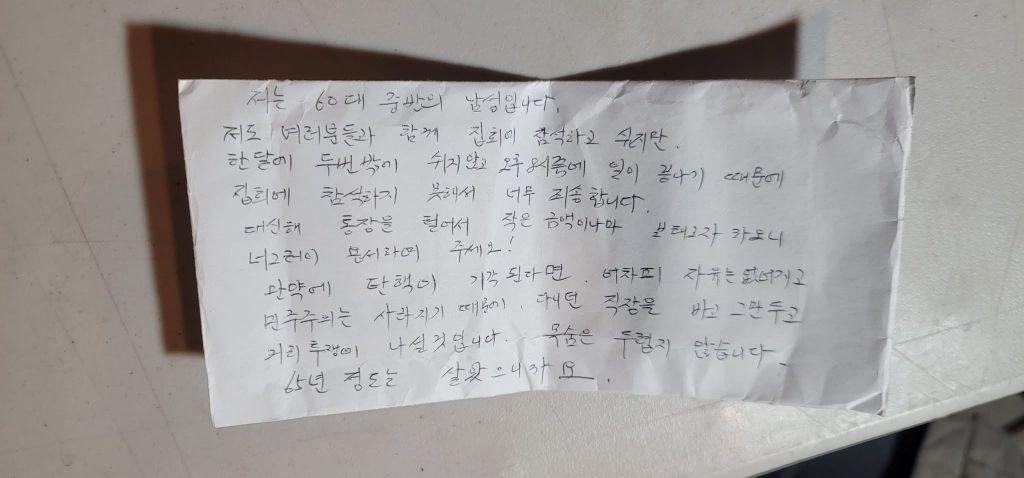 저는 60대 중반의 남성입니다.
저도 여러분들과 함께 집회에 참석하고 싶지만.
한달에 두번밖에 쉬지않고 오후8시쯤에 일이 끝나기 때문에
집회에 참석하지 못해서 너무 죄송합니다.
대신해 통장을 털어서 작은 금액이나마 보태고자 하오니
너그러이 주세요!
만약에 탄핵이 기각 된다면. 어차피 자유는 없어지고
민주주의는 사라지기 때문에. 다니던 직장을 바로 그만두고
거리투쟁에 나설것입니다. 목숨은 두렵지 않습니다
65년 정도는 살았으니까요.